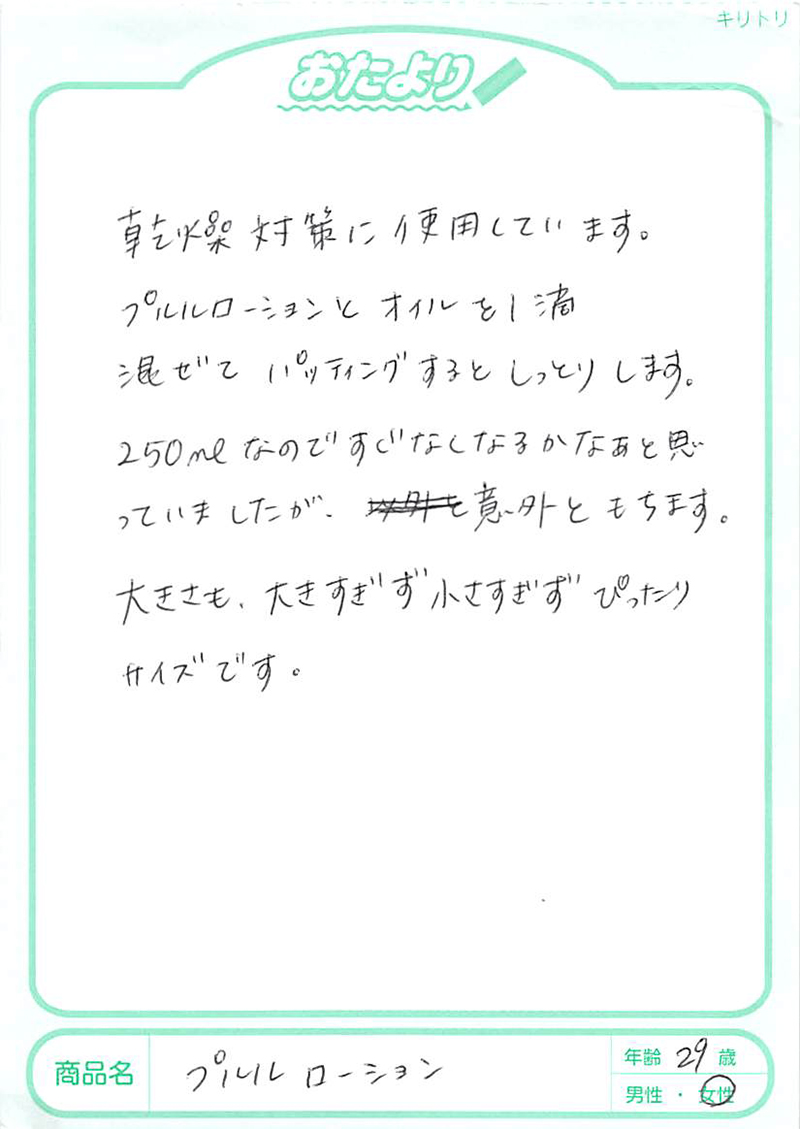 キリトリ
おたより
乾燥対策に使用しています。
プルルローションとオイルを1滴
混ぜて パッティングするとしっとりします。
250mlなのですぐなくなるかなぁと思
っていましたが、意外ともちます。
大きさも、大きすぎず小さすぎず ぴったり
サイズです。
商品名 プルルローション
年齢 29 歳
男性・女性